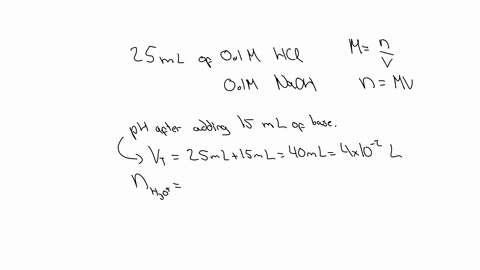 25 mL of 0.1 M HCl M = n/V
0.1 M NaOH n = MV
pH after adding 15 mL of base.
→ V_T = 25mL + 15mL = 40mL = 4x10^-2 L
n_H3O+ =